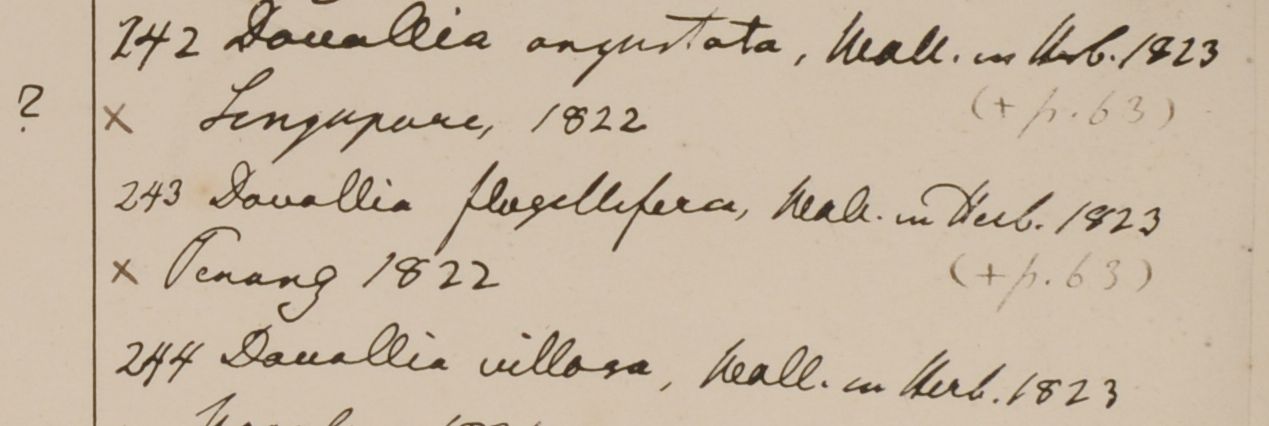 242 Davallia angustata, Wall. in Herb. 1823
? × Singapore, 1822 (+ p. 63)
243 Davallia flagellifera, Wall. in Herb. 1823
× Penang 1822 (+ p. 63)
244 Davallia villosa, Wall. in Herb. 1823